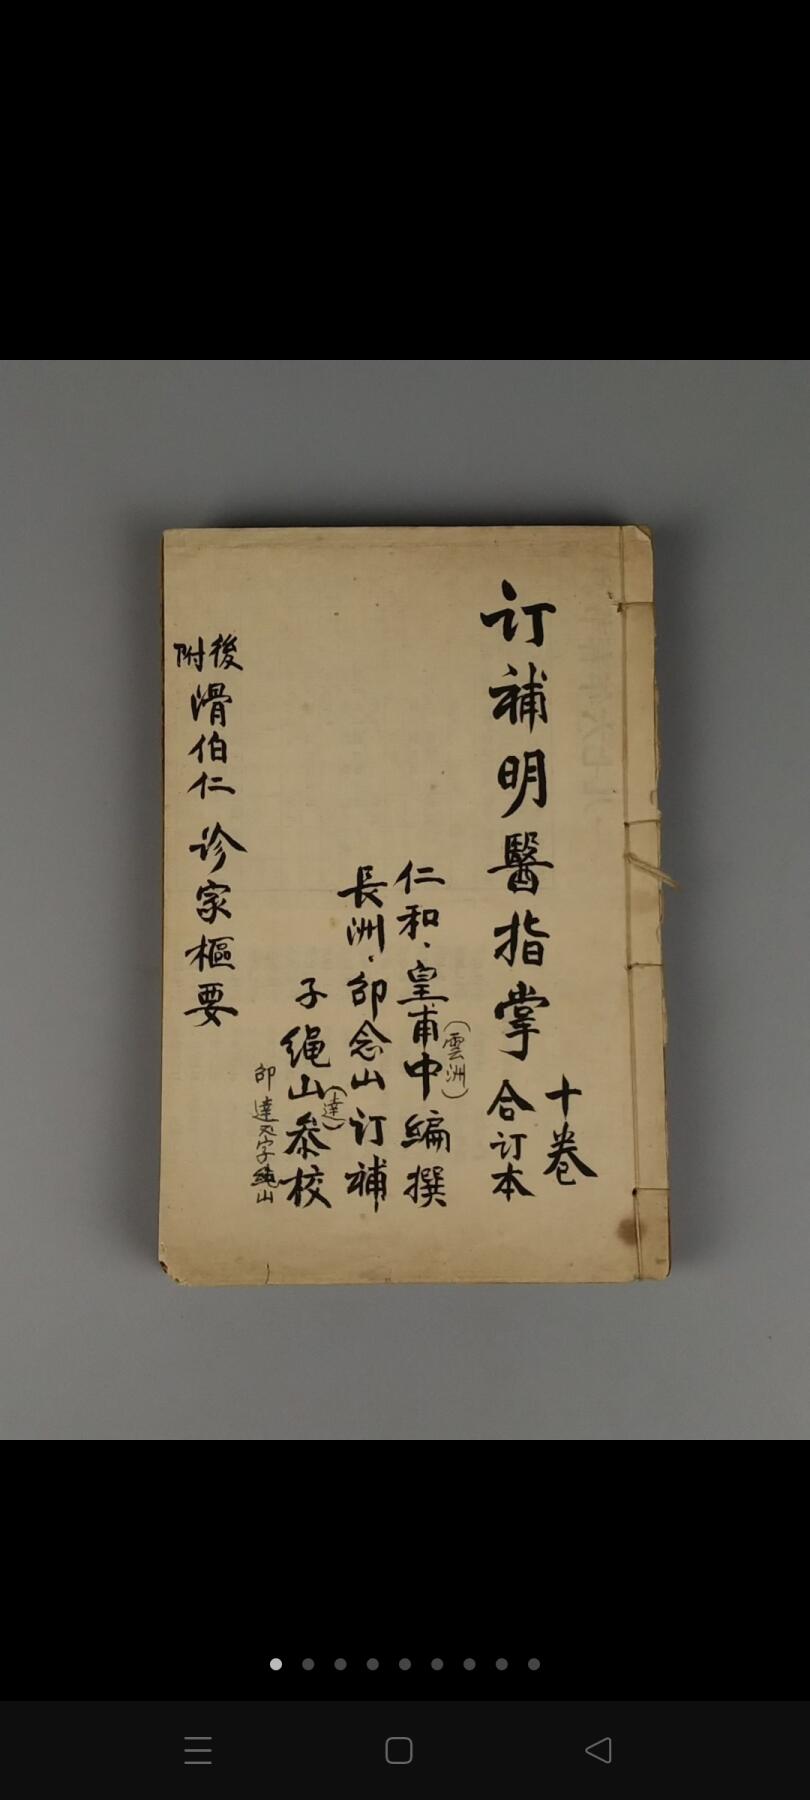 订補明醫指掌 合订本
十卷
仁和·皇甫中編撰
(雲洲)
長洲·邵念山订補
子 绳山叅校
(達)
邵達又字純山
後附
滑伯仁 诊家樞要